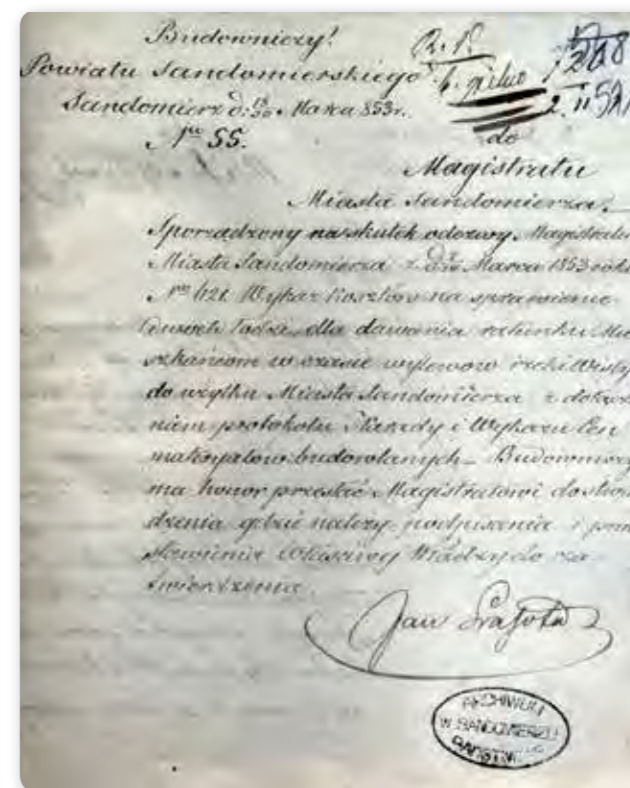 Budowniczy!
Powiatu Sandomierskiego
Sandomierz d: Marca 853 r.
Nro 55.
pilno
do
Magistratu
Miasta Sandomierza.
Sporządzony na skutek odezwy Magistratu
Miasta Sandomierza z d. Marca 1853 roku
Nro 621 Wykaz Kosztów na sprawienie
dwóch łodzi, dla dawania ratunku Mie
szkańcom w czasie wylewów rzeki Wisły
do użytku Miasta Sandomierza z
niem protokołu i Wykazu Cen
materyałów budowlanych – Budowniczy
ma honor przesłać Magistratowi do
dzenia gdzie należy podpisania i
stawienia Właściwey Władzy do za
twierdzenia.
Jan
ARCHIWUM
W SANDOMIERZU